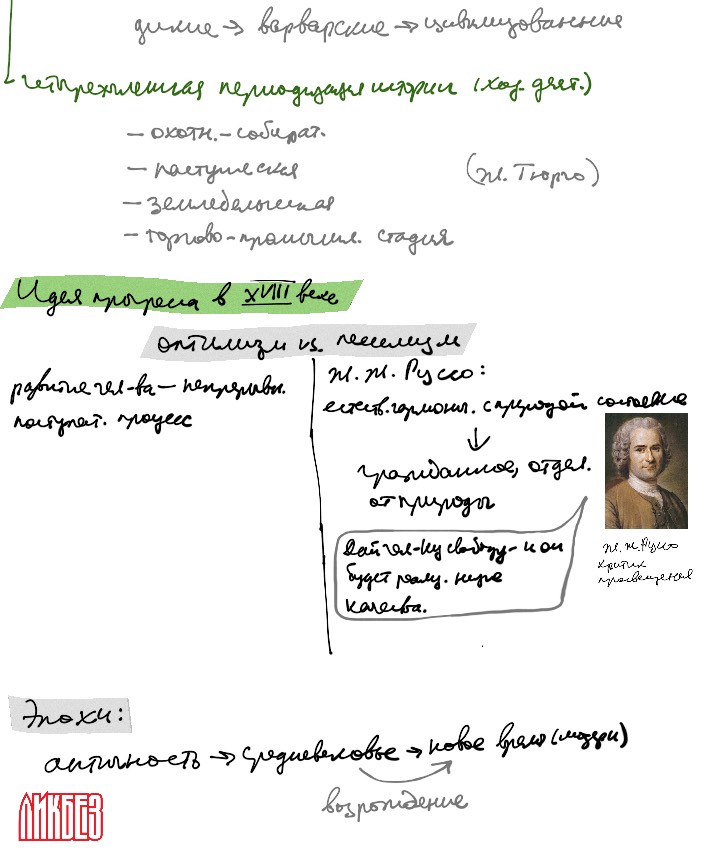 дикие → варварские → цивилизованные
четырехчленная периодизация истории (хоз. деят.)
– охотн.-собират.
– пастушеская
(Ж. Тюрго)
– земледельческая
– торгово-промышл. стадия
Идея прогресса в XVIII веке
оптимизм vs. пессимизм
развитие чел-ва – непрерывн.
поступат. процесс
Ж. Ж. Руссо:
естеств. гармонич. с природой состояние
↓
гражданское, отдел.
от природы
Дай чел-ку свободу – и он
будет реализ. 
качества.
Ж. Ж. Руссо
критик
просвещения
Эпохи:
античность → средневековье → новое время (модерн)
возрождение
ЛИКБЕЗ